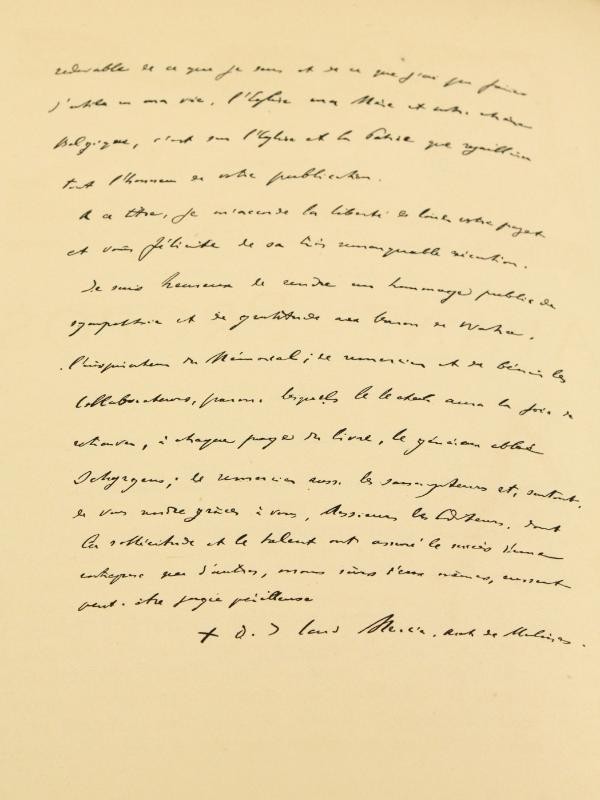 redevable de ce que je suis et de ce que j'ai pu faire
d'utile en ma vie, l'Eglise ma Mère et notre chère
Belgique, c'est sur l'Eglise et la Patrie que rejaillira
tout l'honneur de votre publication.
A ce titre, je m'accorde la liberté de louer votre projet
et vous félicite de sa très remarquable exécution.
Je suis heureux de rendre un hommage public de
sympathie et de gratitude au baron de
l'inspirateur du Mémorial; de remercier et de bénir les
collaborateurs, parmi lesquels le lecteur aura la joie de
retrouver, à chaque page du livre, le généreux abbé
Schyrgens; de remercier aussi les souscripteurs et, surtout,
de vous rendre grâces à vous, Messieurs les Editeurs, dont
la sollicitude et le talent ont assuré le succès d'une
entreprise que d'autres, moins sûrs d'eux-mêmes, eussent
peut-être jugée périlleuse
+ D. J. Card. Mercier, arch. de Malines.